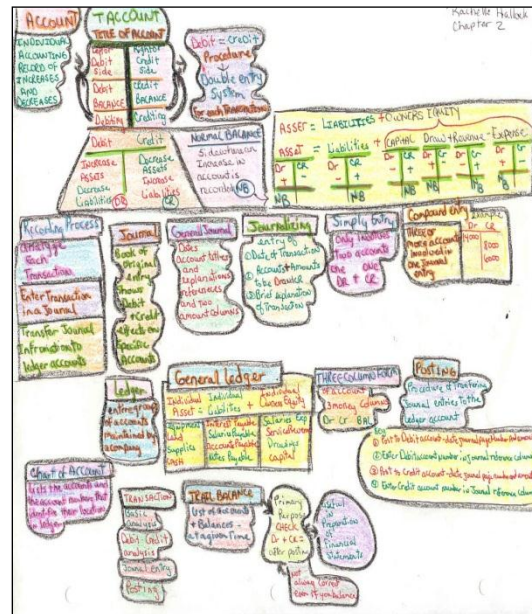 Rachelle Hallock
Chapter 2
ACCOUNT
INDIVIDUAL
ACCOUNTING
RECORD OF
INCREASES
AND
DECREASES
T ACCOUNT
TITLE OF ACCOUNT
Debit
Side
Credit
Side
Debit
BALANCE
Credit
BALANCE
Debiting
Crediting
Debit = Credit
Procedure
Double entry
System
for each Transaction
Debit
Credit
INCREASE
ASSETS
Decrease
Liabilities
DR
Decrease
Assets
Increase
Liabilities
CR
NORMAL BALANCE
Increase in
account is
recorded
NB
ASSET = LIABILITIES + OWNERS EQUITY
ASSET = Liabilities + CAPITAL Draw + Revenue - Expense
Dr CR Dr CR Dr Cr Dr Cr Dr Cr Dr Cr
+ - - + - + + - - + + -
NB NB NB NB NB NB
Recording Process
Each
Transaction
Enter Transaction
in a Journal
Transfer Journal
to
ledger accounts
Journal
Book of
Original
entry
Shows
Debit
+ Credit
effects on
Specific
Accounts
General Journal
Dates
account titles
and
explanations
references
and two
amount columns
Journalizing
entry of
① Date of Transaction
② Accounts + Amounts
to be DR or CR
③ Brief explanation
of Transaction
Simply Entry
Only involves
Two accounts
one one
DR + CR
Compound entry
Three or
more accounts
involved in
one Journal
entry
Dr CR
14000
8000
6000
Ledger
entire group
of accounts
maintained by
a company
General ledger
Individual Individual Individual
Asset = Liabilities + Owners Equity
Equipment
Land
Supplies
CASH
Interest Payable
Salaries Payable
Accounts Payable
Notes Payable
Salaries Exp
Service Revenue
Drawings
Capital
THREE COLUMN FORM
OF ACCOUNT
3 money columns
Dr Cr BAL
POSTING
Procedure of Transferring
Journal entries to the
Ledger account
① Post to Debit account - date journal page number and amount
② Enter Debit account number in journal reference column
③ Post to Credit account - date journal page number and amount
④ Enter Credit account number in Journal reference column
Chart of Account
Lists the accounts and
the account numbers that
identifies their location
in ledger
TRANSACTION
Basic
analysis
Debit Credit
analysis
Journal Entry
Posting
TRAIL BALANCE
List of accounts
+ Balances
at a given Time
Primary
Purpose
CHECK
Dr + CR =
after posting
Useful
in
Preparation
of
Financial
Statements
Not
always correct
Even if you balance